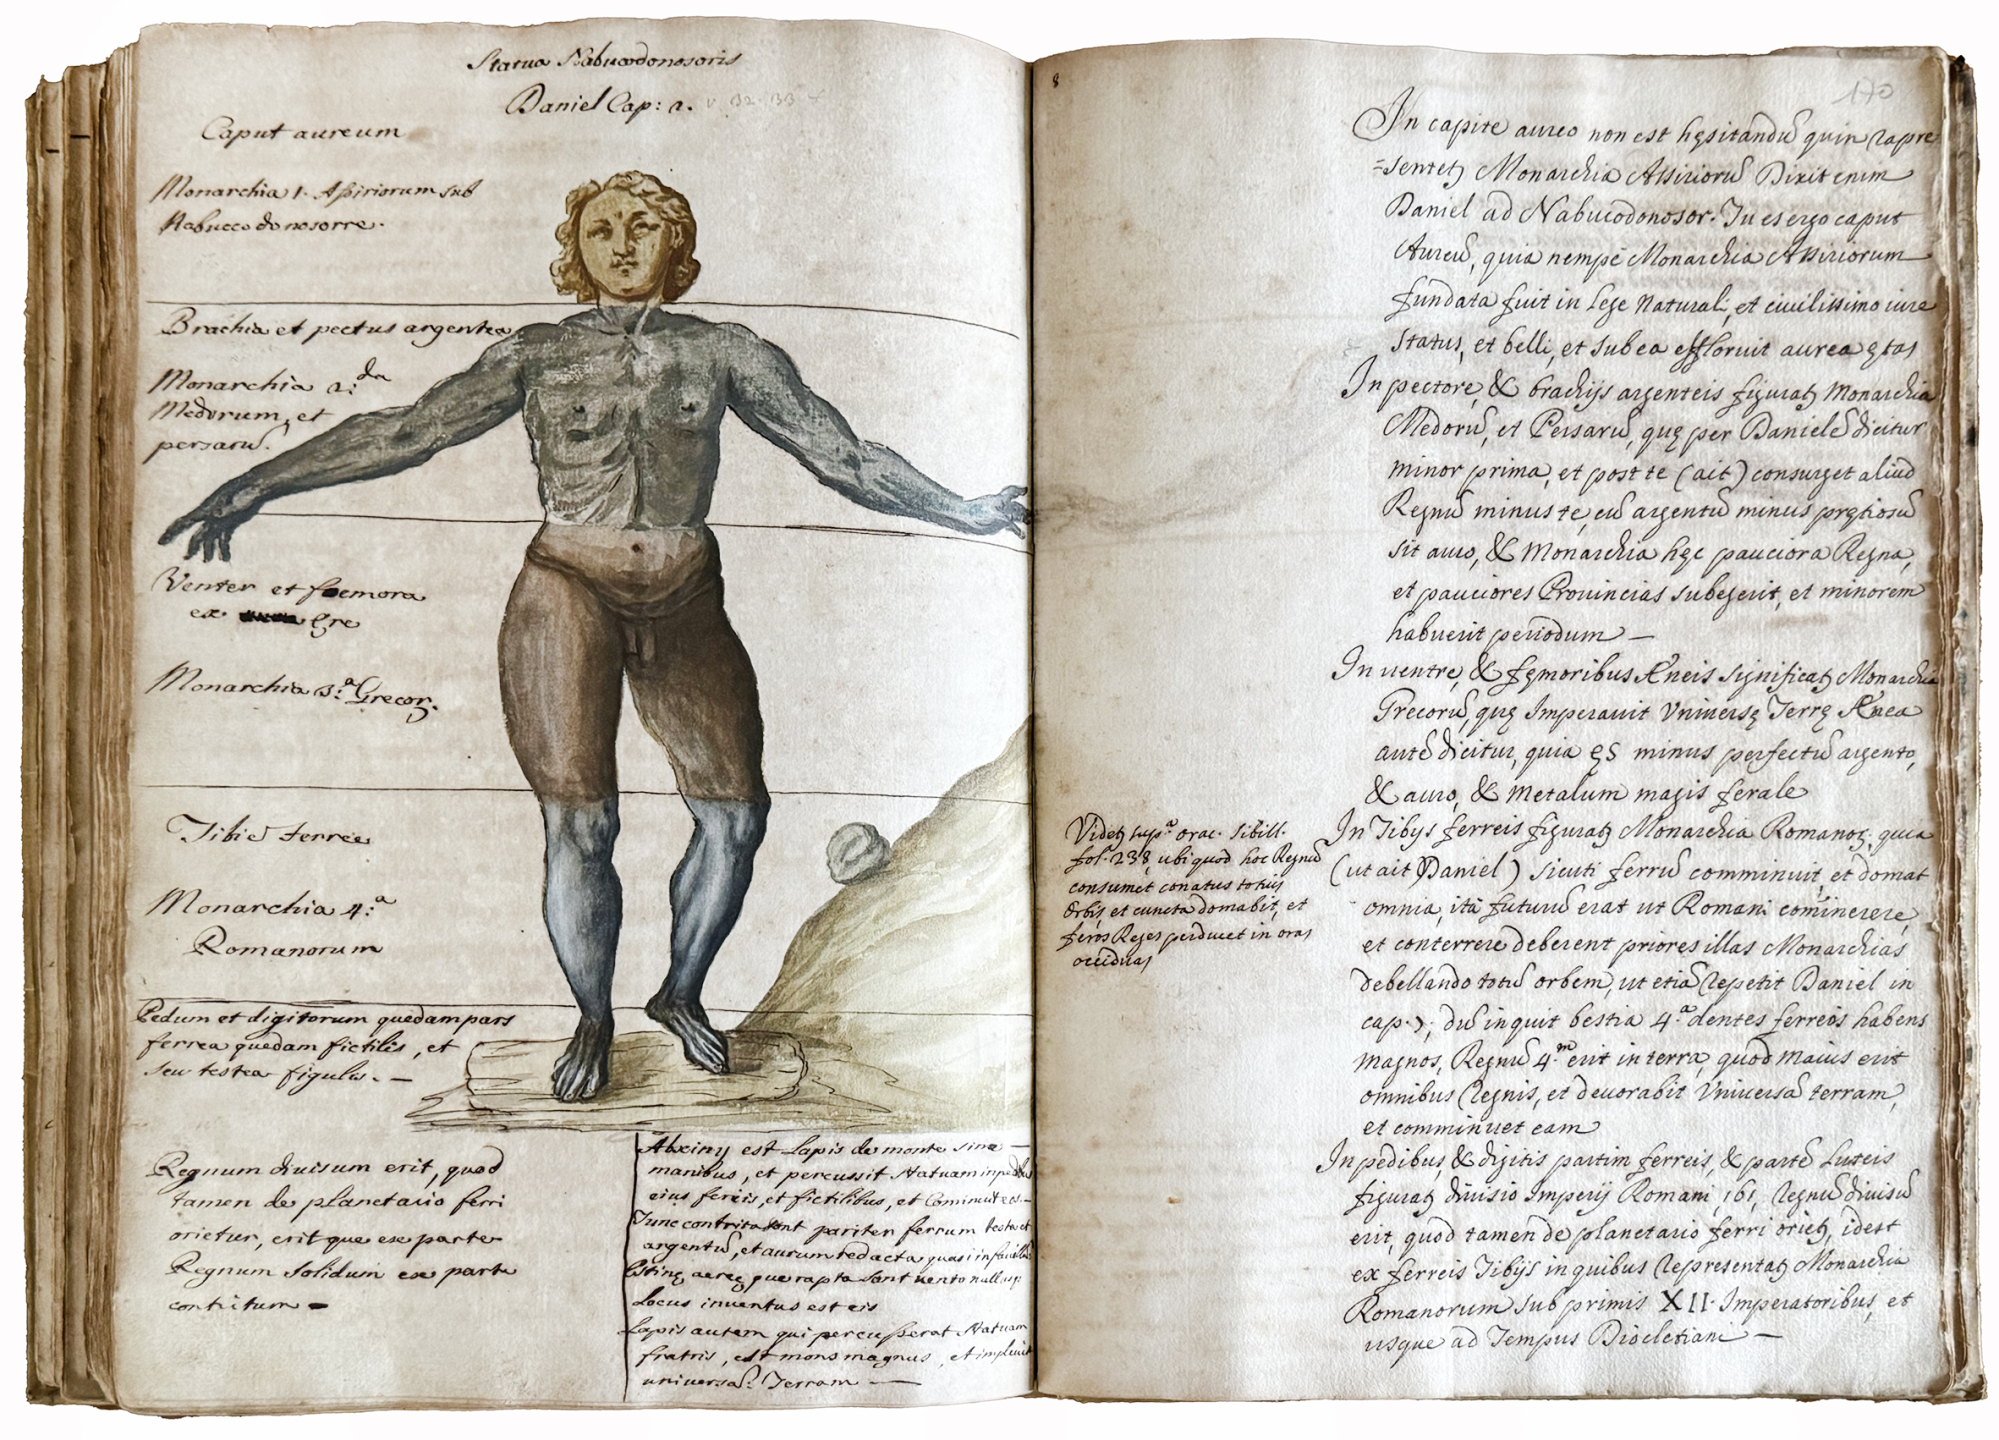 Statua Nabucodonosoris
Daniel Cap: 2. v. 32. 33
Caput aureum
Monarchia 1. Assiriorum sub
Nabuccodonosorre.
Brachia et pectus argentea
Monarchia 2:da
Medorum, et
persarū.
Venter et foemora
ex Ere
Monarchia 3:a Grecor.
Tibie ferree
Monarchia 4:a
Romanorum
Pedum et digitorum quedam pars
ferrea quedam fictilis, et
seu testea figulis. —
Regnum diuisum erit, quod
tamen de planetario ferri
orietur, eritque ex parte
Regnum Solidum ex parte
contritum —
est Lapis de monte sine —
manibus, et percussit statuam in pedibus
eius fereis, et fictilibus, et Cominuit eos —
Tunc contrita sunt pariter ferrum testa et
argentū, et aurum redacta quasi in
que rapta sunt uento nullusq;
Locus inuentus est eis
Lapis autem qui percusserat statuam
est mons magnus, et impleuit
uniuersā Terram —
8
170
In capite aureo non est hęsitandū quin rapre
=sentetꝫ Monarchia Assiriorū Dixit enim
Daniel ad Nabucodonosor. Tu es ergo caput
Aureū, quia nempè Monarchia Assiriorum
fundata fuit in lege Naturali, et ciuilissimo iure
status, et belli, et sub ea effloruit aurea ętas
In pectore, & brachijs argenteis figuratꝫ Monarchia
Medorū, et Persarū, quę per Danielē dicitur
minor prima, et post te (ait) consurget aliud
Regnū minus te, cū argentū minus prętiosū
sit auro, & Monarchia hęc pauciora Regna,
et pauciores Prouincias subegerit, et minorem
habuerit periodum —
In uentre, & fęmoribus Æneis significatꝫ Monarchia
Grecorū, quę Imperauit Vniuersę Terrę Ænea
autē dicitur, quia ęs minus perfectū argento,
& auro, & metalum magis ferale
In Tibijs ferreis figuratꝫ Monarchia Romanoꝝ; quia
(ut ait Daniel) sicuti ferrū comminuit, et domat
omnia, ità futurū erat ut Romani cominerere,
et conterrere deberent priores illas Monarchias
debellando totū orbem, ut etiā repetit Daniel in
cap. 7; dū inquit bestia 4.a dentes ferreos habens
magnos, Regnū 4.m erit in terra, quod maius erit
omnibus Regnis, et deuorabit Vniuersā terram,
et comminuet eam
In pedibus, & digitis partim ferreis, & partē Luteis
figuratꝫ diuisio Imperij Romani, ibi, Regnū diuisū
erit, quod tamen de planetario ferri orietꝫ, idest
ex ferreis Tibijs in quibus representatꝫ Monarchia
Romanorum sub primis XII. Imperatoribus, et
usque ad Tempus Diocletiani —
Videtꝫ supa orac. Sibill.
fol. 238 ubi quod hoc Regnū
consumet conatus totius
Orbis, et cuncta domabit, et
feros Reges perducet in oras
occiduas